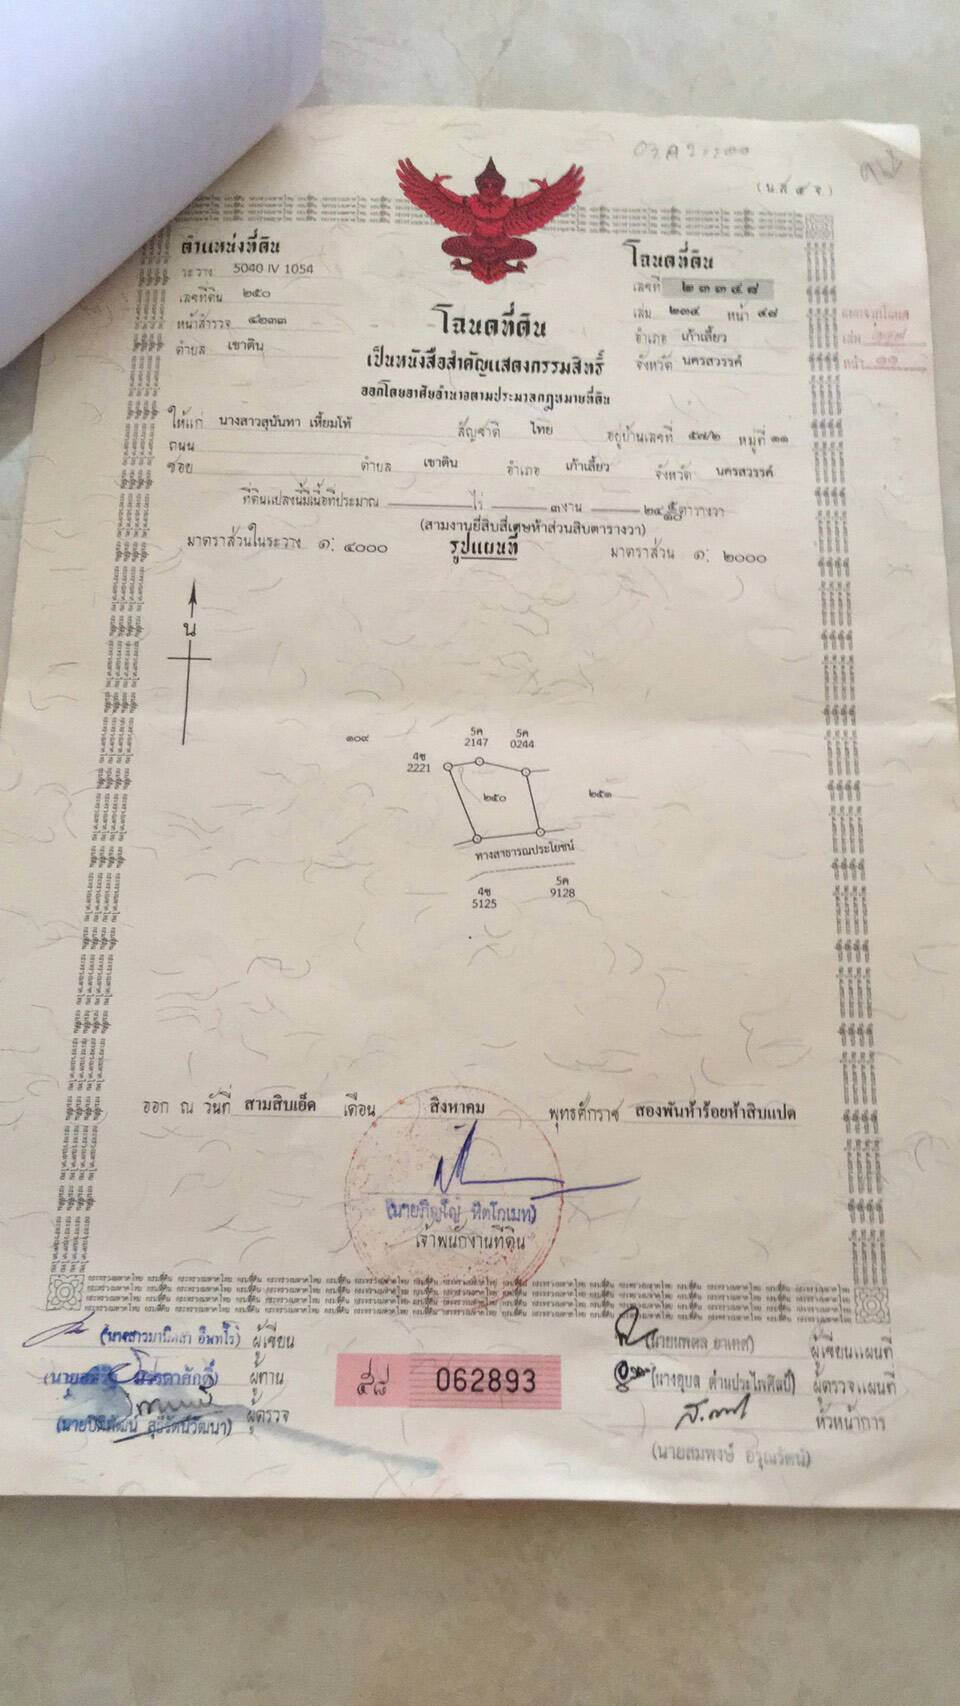 (น.ส. ๔ จ.)
ตำแหน่งที่ดิน
ระวาง 5040 IV 1054
เลขที่ดิน ๒๕๐
หน้าสำรวจ ๔๒๓๓
ตำบล เขาดิน
โฉนดที่ดิน
เลขที่ ๒๓๓๔๘
เล่ม ๒๓๔ หน้า ๔๘
อำเภอ เก้าเลี้ยว
จังหวัด นครสวรรค์
เล่ม
หน้า
โฉนดที่ดิน
เป็นหนังสือสำคัญแสดงกรรมสิทธิ์
ออกโดยอาศัยอำนาจตามประมวลกฎหมายที่ดิน
ให้แก่ นางสาวสุนันทา เหี้ยมโท้ สัญชาติ ไทย อยู่บ้านเลขที่ ๕๗/๒ หมู่ที่ ๑๑
ถนน
ซอย ตำบล เขาดิน อำเภอ เก้าเลี้ยว จังหวัด นครสวรรค์
ที่ดินแปลงนี้มีเนื้อที่ประมาณ ไร่ ๓ งาน ๒๔ ๕/๑๐ ตารางวา
(สามงานยี่สิบสี่เศษห้าส่วนสิบตารางวา)
มาตราส่วนในระวาง ๑: ๔๐๐๐ รูปแผนที่ มาตราส่วน ๑: ๒๐๐๐
น
๑๐๙
5ค 5ค
2147 0244
4ซ
2221
๒๕๐
๒๕๑
ทางสาธารณประโยชน์
4ซ 5ค
5125 9128
ออก ณ วันที่ สามสิบเอ็ด เดือน สิงหาคม พุทธศักราช สองพันห้าร้อยห้าสิบแปด
เจ้าพนักงานที่ดิน
ผู้เขียน
ผู้ทาน
ผู้ตรวจ
๕๘ 062893
(นายนพดล ยาเดศ) ผู้เขียนแผนที่
ผู้ตรวจแผนที่
หัวหน้าการ
(นายสมพงษ์ อรุณรัตน์)